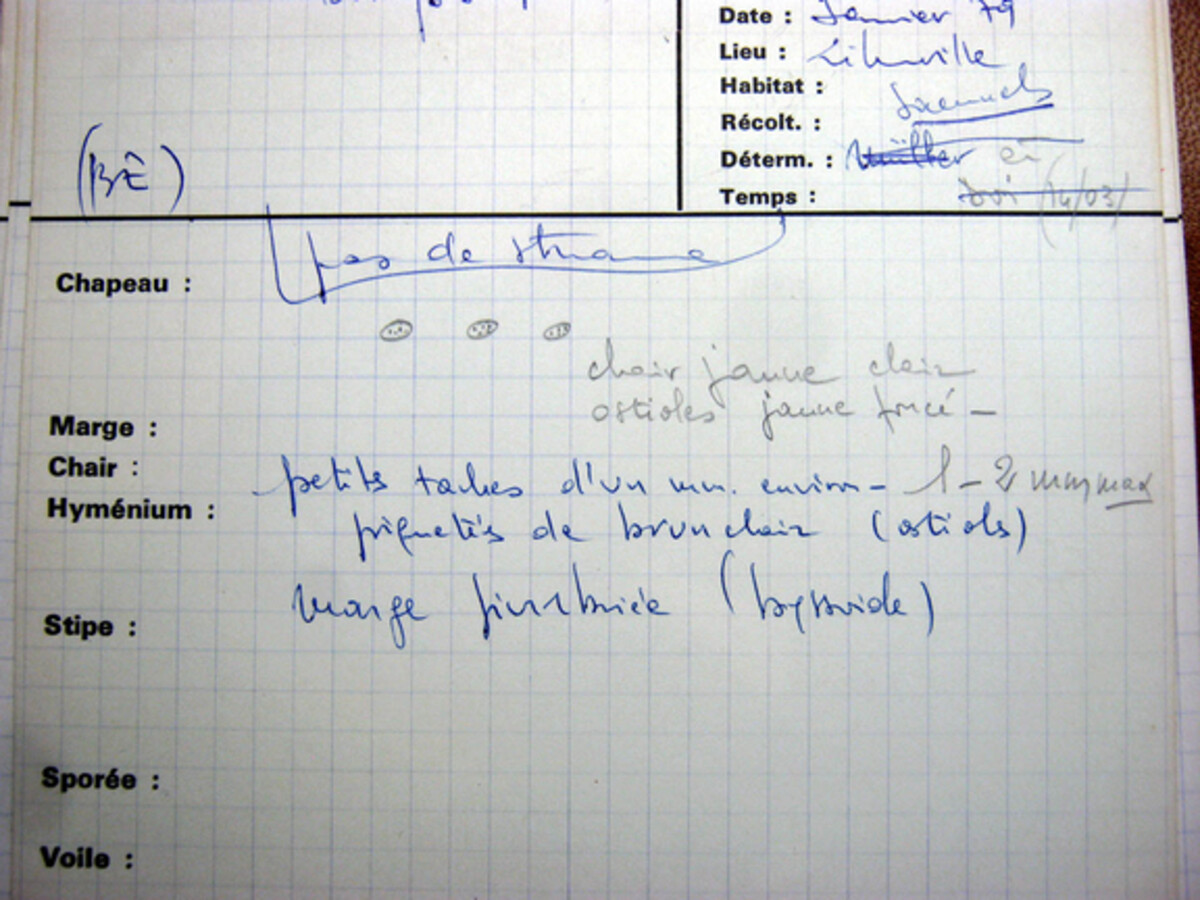 Date : Janvier 79
Lieu : Libreville
Habitat :
Samuels
Récolt. :
Déterm. : Müller
Temps : (14/03)
(BÊ)
pas de stroma
Chapeau :
chair jaune clair
ostioles jaune foncé -
Marge :
Chair :
petits taches d'un mm. environ - 1-2 mm max
Hyménium :
piquetés de brun clair (ostiols)
marge fimbriée (byssoide)
Stipe :
Sporée :
Voile :